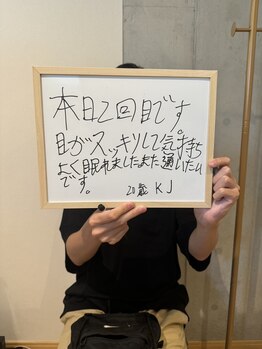 本日2回目です。
目がスッキリして気持ち
よく眠れましたまた通いたい
です。
20歳 KJ